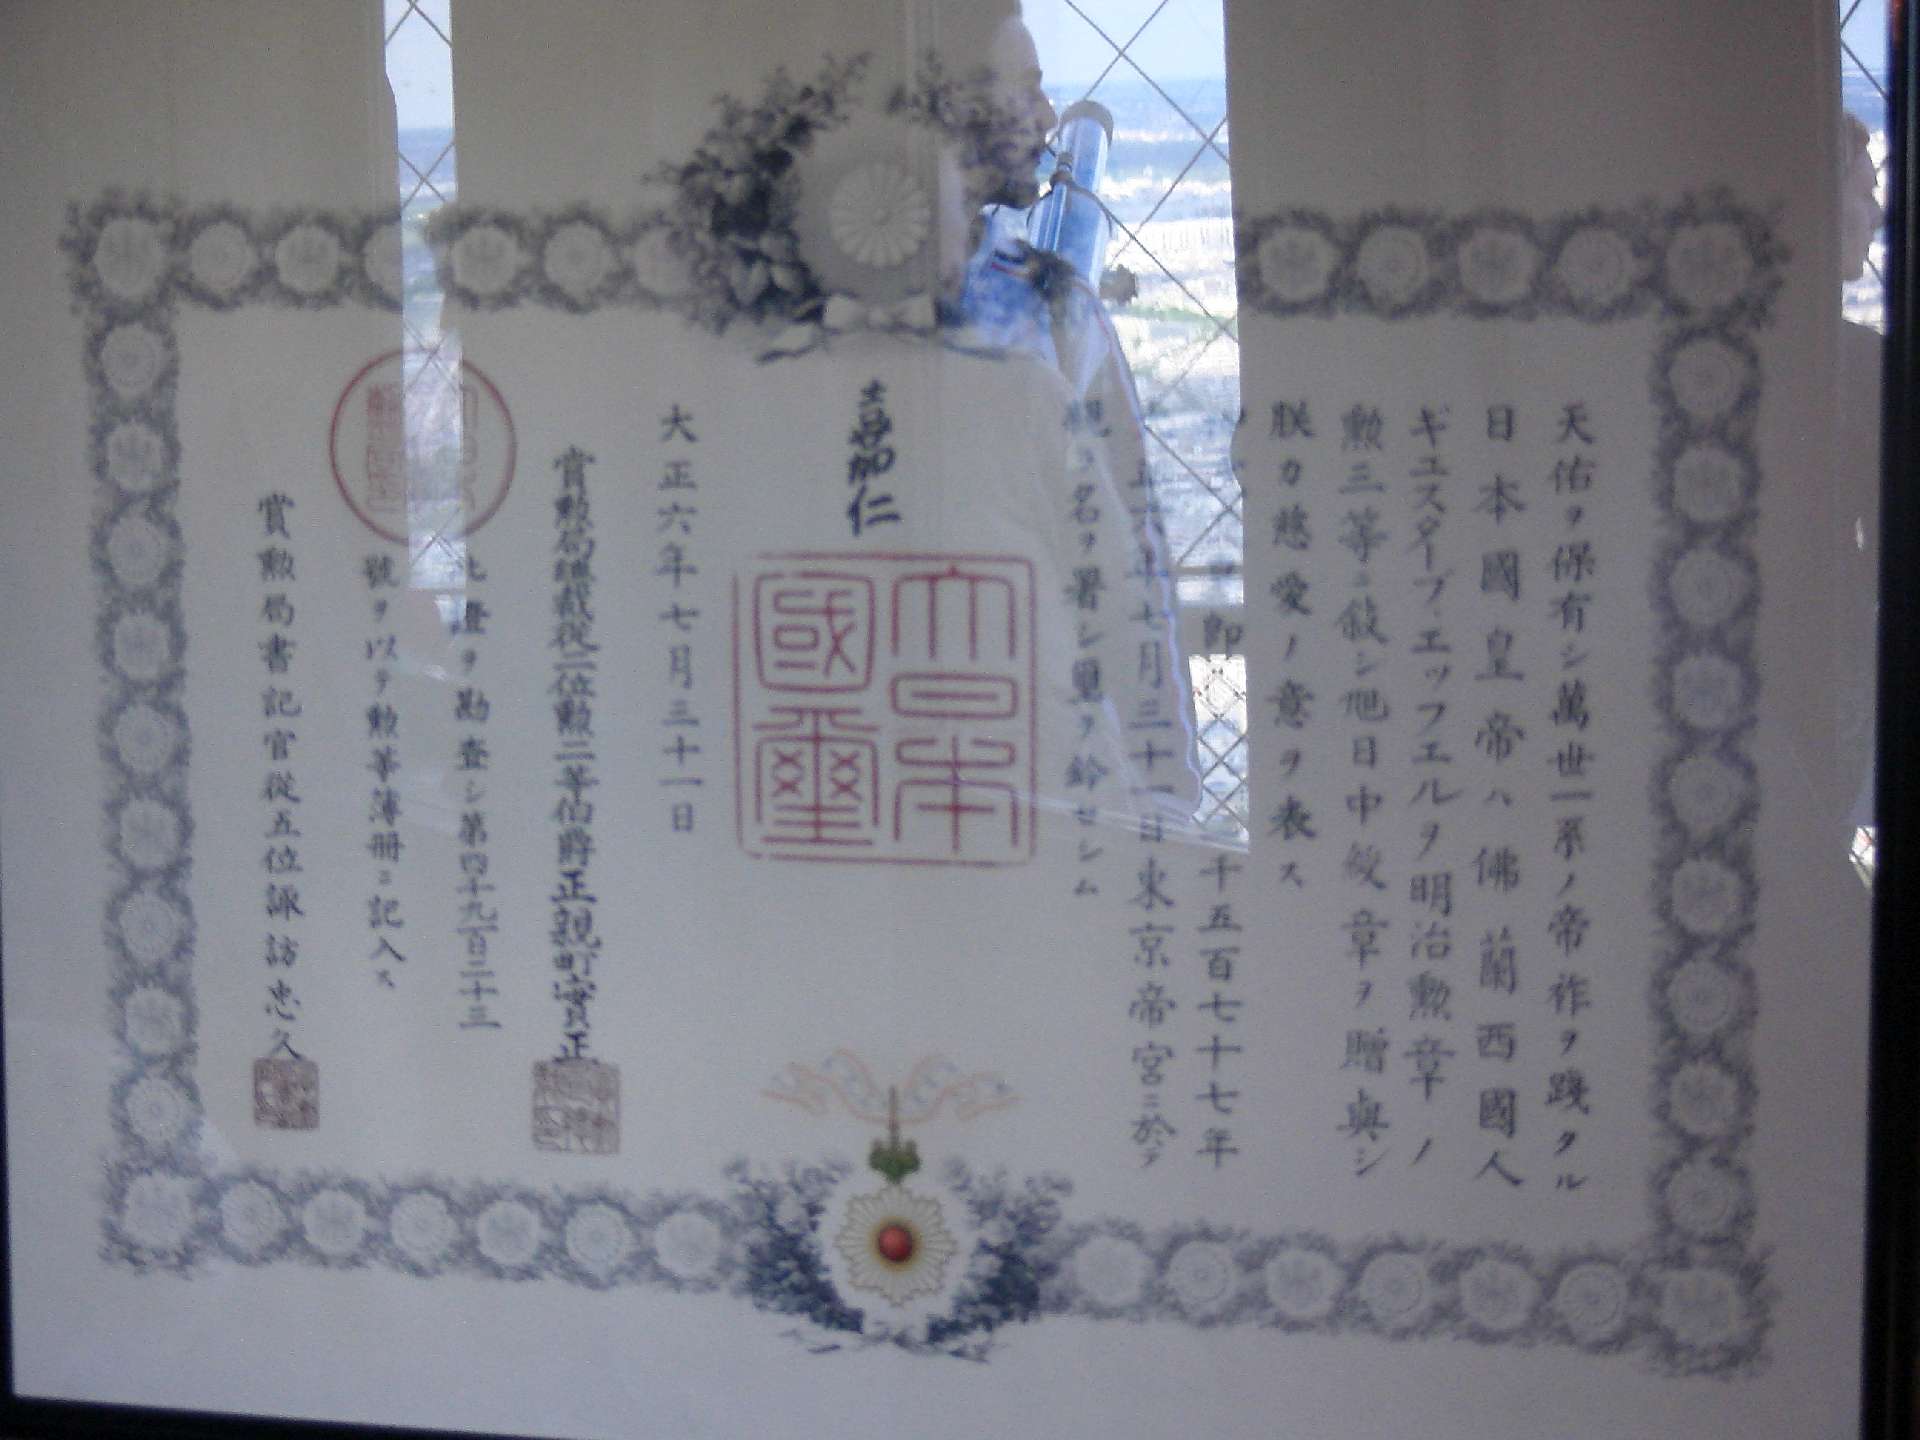 天佑ヲ保有シ萬世一系ノ帝祚ヲ踐タル
日本國皇帝ハ佛蘭西國人
ギュスターブ・エッフエルヲ明治勲章ノ
勲三等ニ敍シ旭日中綬章ヲ贈與シ
朕カ慈愛ノ意ヲ表ス
即 千五百七十七年
正六年七月三十一日東京帝宮ニ於テ
親ラ名ヲ署シ璽ヲ鈐セシム
嘉仁
大日本國璽
大正六年七月三十一日
賞勲局總裁從二位勲二等伯爵正親町實正
此證ヲ勘査シ第四千九百三十三
號ヲ以テ勲等簿冊ニ記入ス
賞勲局書記官從五位諏訪忠久